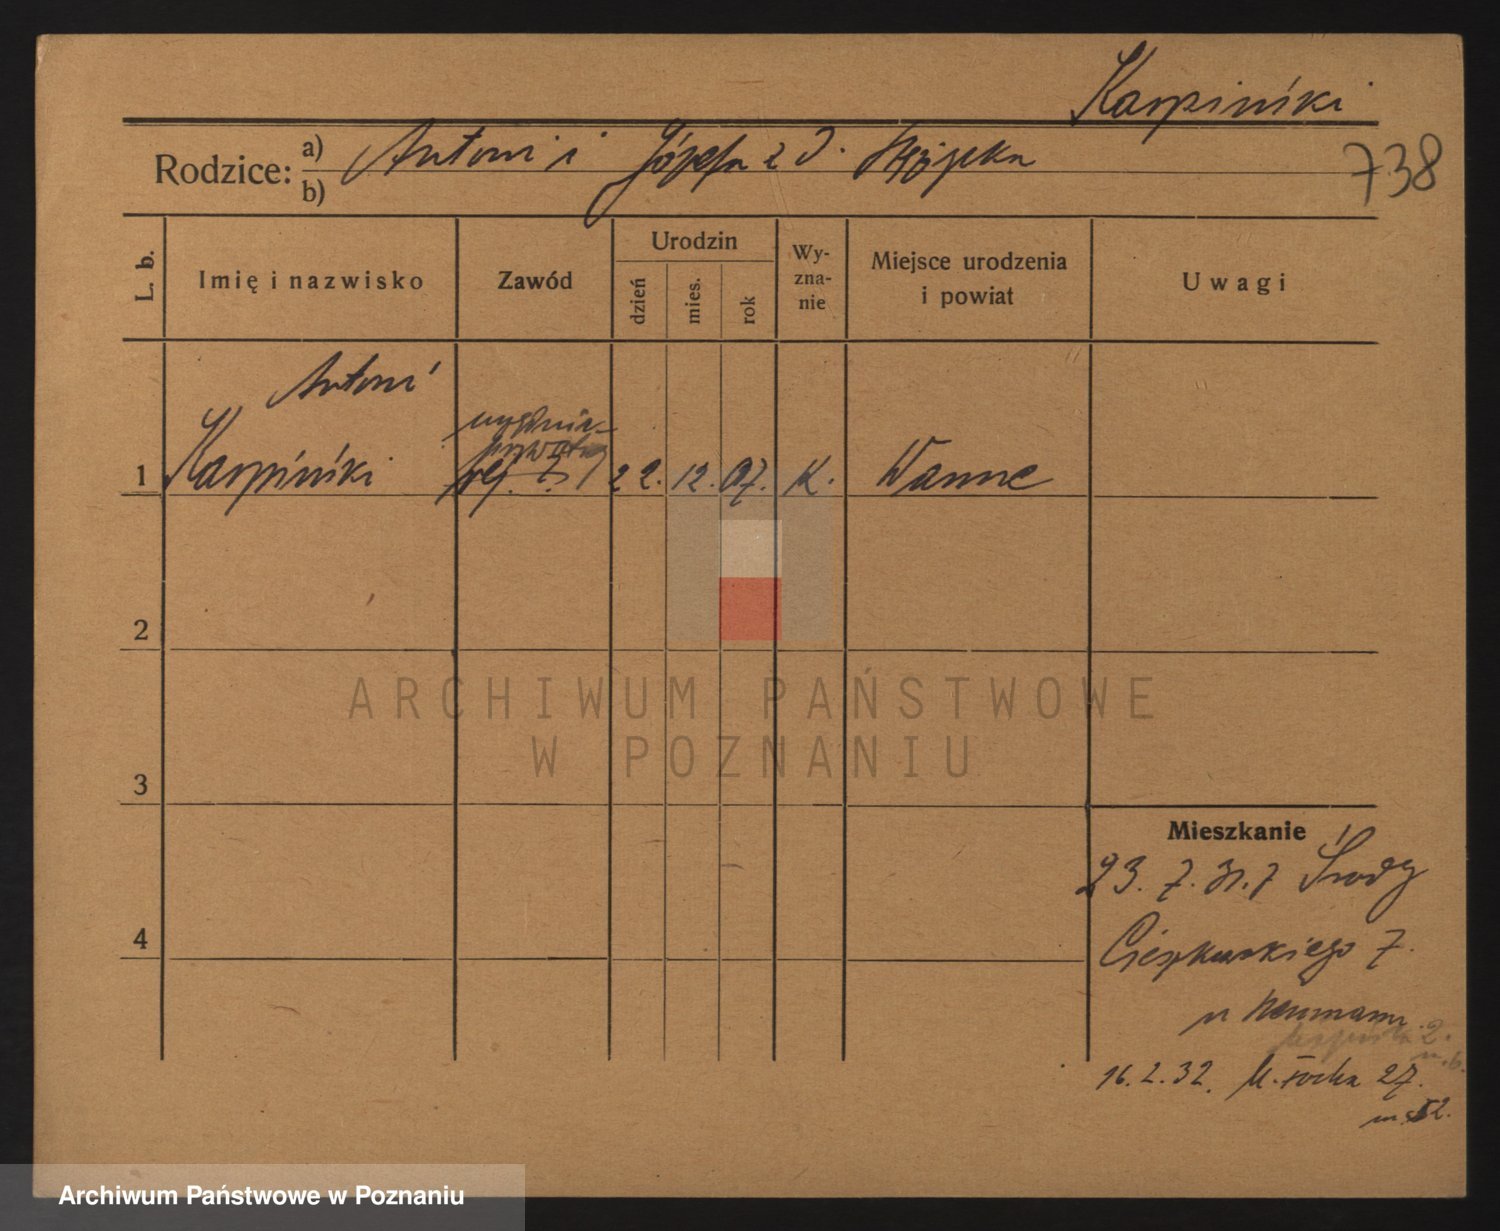 Karpiński
738
Rodzice: a) Antoni i Józefa z d.
b)
L. b.
Imię i nazwisko
Zawód
Urodzin
dzień
mies.
rok
Wy-
zna-
nie
Miejsce urodzenia
i powiat
Uwagi
Antoni
1 Karpiński 22. 12. 07. K. Wanne
2
3
4
ARCHIWUM PAŃSTWOWE
W POZNANIU
Mieszkanie
23. 7. 31. z Środy
Cieszkowskiego 7.
u Neumann
2.
m. 6.
16. 2. 32. 27.
m. 12.
Archiwum Państwowe w Poznaniu